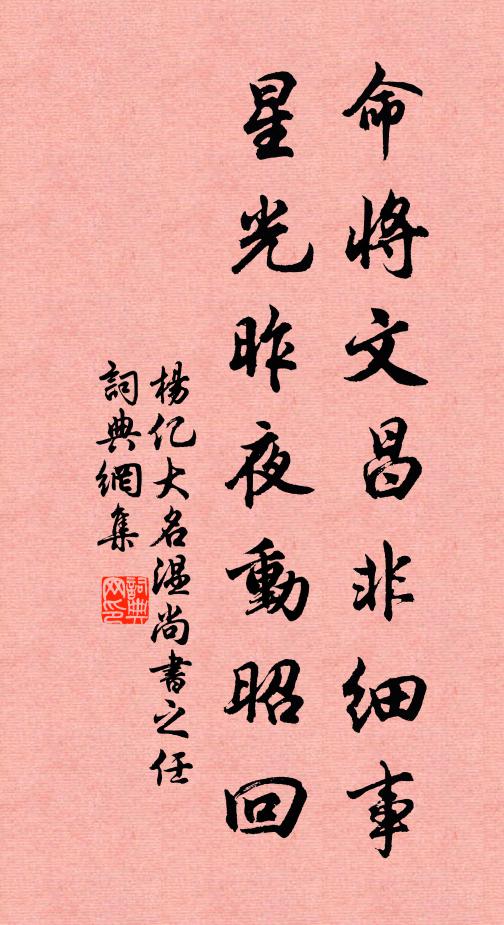 命將文昌非細事
星光昨夜動昭回
楊亿大名温尚書之任
詞典網集
詞典網印